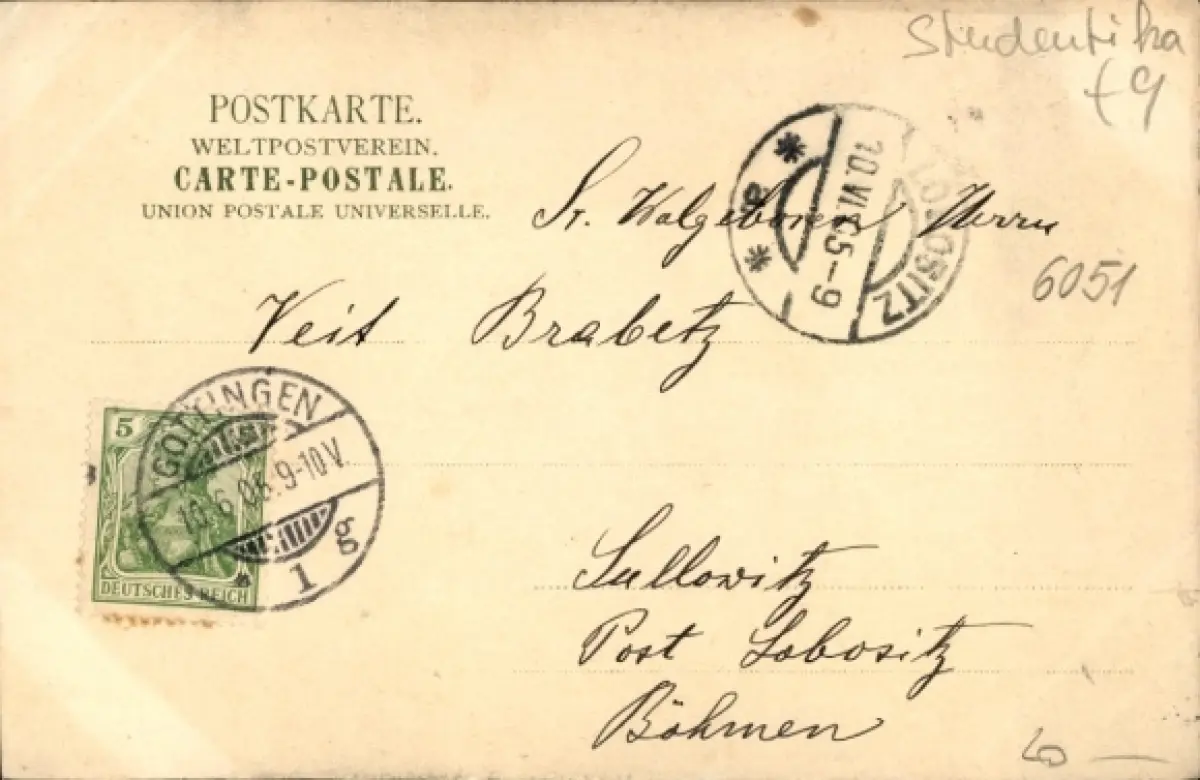 Studentika
+9
POSTKARTE.
WELTPOSTVEREIN.
CARTE-POSTALE.
UNION POSTALE UNIVERSELLE.
LOBOSITZ
10.VI.05-9
Sr. Walgeboren Herrn
6051
Veit Brabetz
GÖTTINGEN
10.6.05.9-10V.
1 g
5
DEUTSCHES REICH
Sullowitz
Post Lobositz
Böhmen